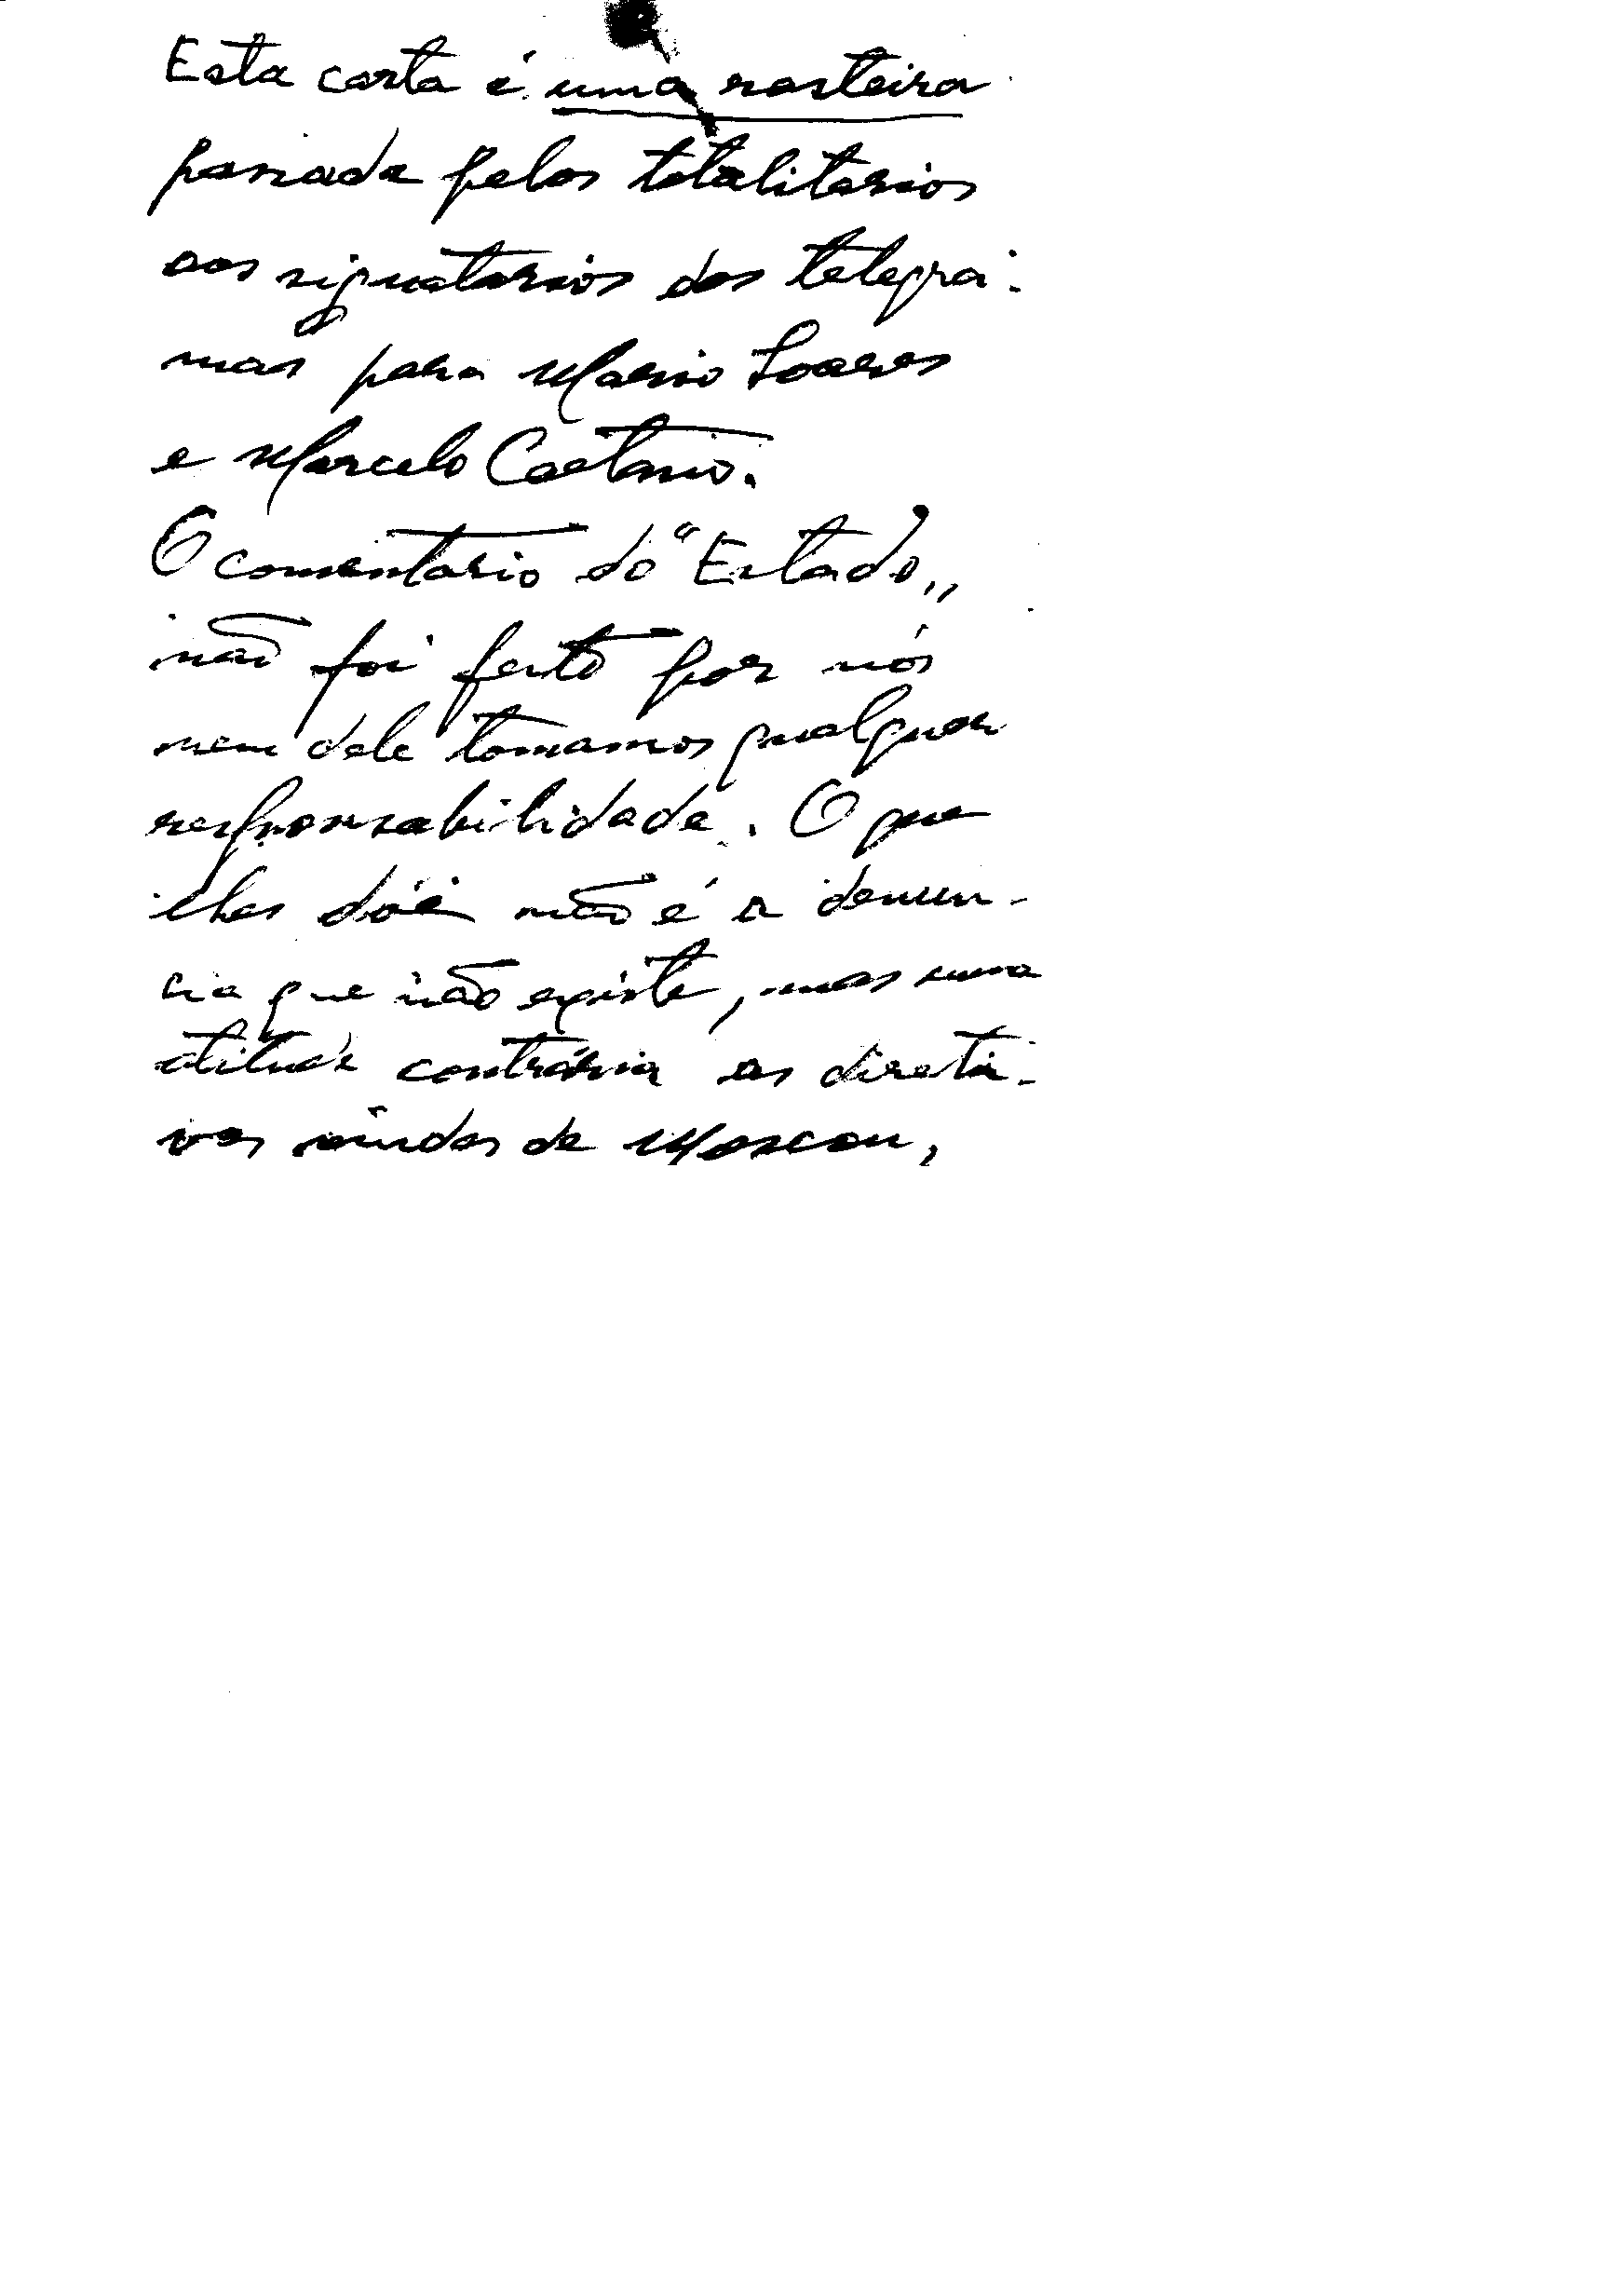 Esta carta é uma rasteira
passada pelos totalitarios
aos signatarios dos telegra-
mas para Mario Soares
e Marcelo Caetano.
O comentario do "Estado"
não foi feito por nós
nem dele tomamos qualquer
responsabilidade. O que
lhes dóe não é a denun-
cia que não existe, mas uma
atitude contrária as direti-
vas vindas de Moscou,